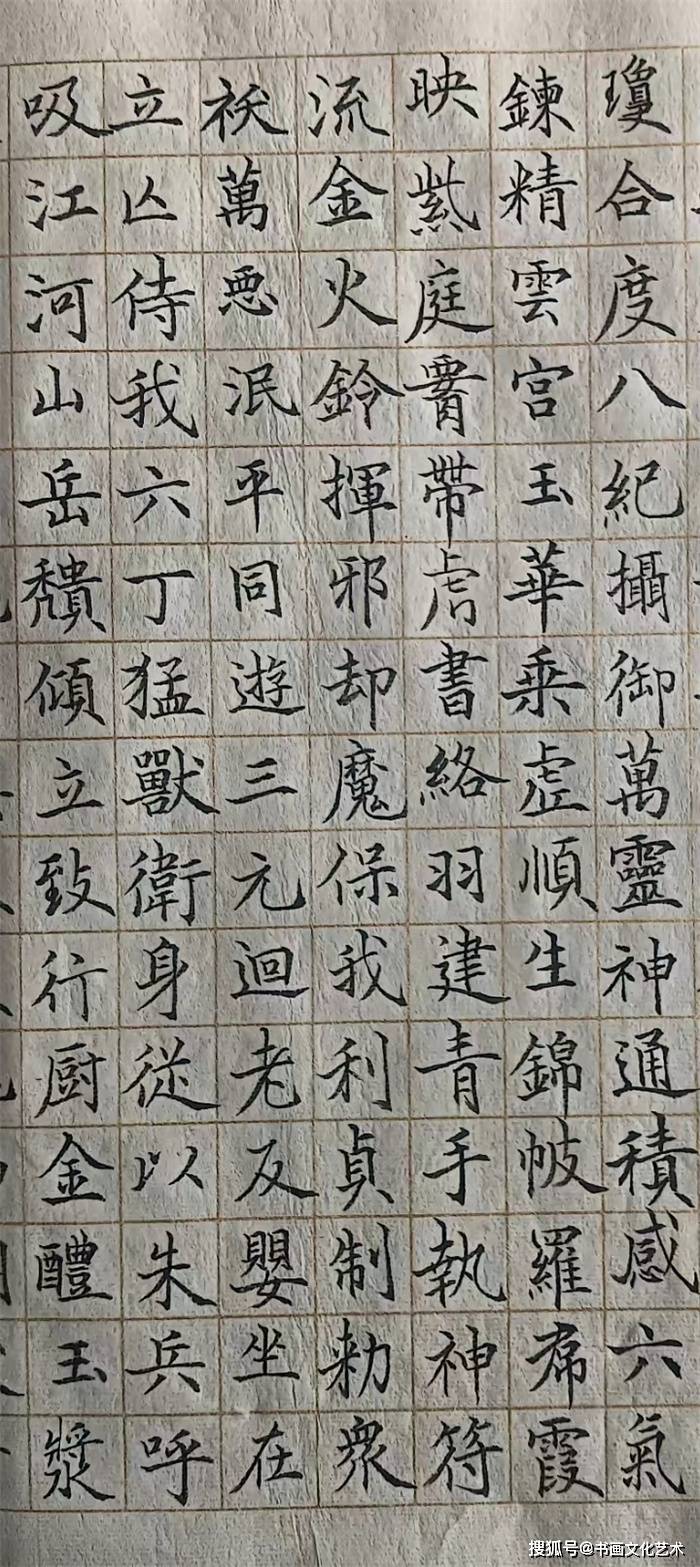 瓊合度八紀攝御萬靈神通積感六氣
鍊精雲宮玉華乗虛順生錦帔羅帬霞
映紫庭腎帶虎書絡羽建青手執神符
流金火鈴揮邪却魔保我利貞制勑衆
祅萬惡泯平同遊三元迴老反嬰坐在
立亾侍我六丁猛獸衛身從以朱兵呼
吸江河山岳穨傾立致行厨金醴玉漿
搜狐号@书画文化艺术